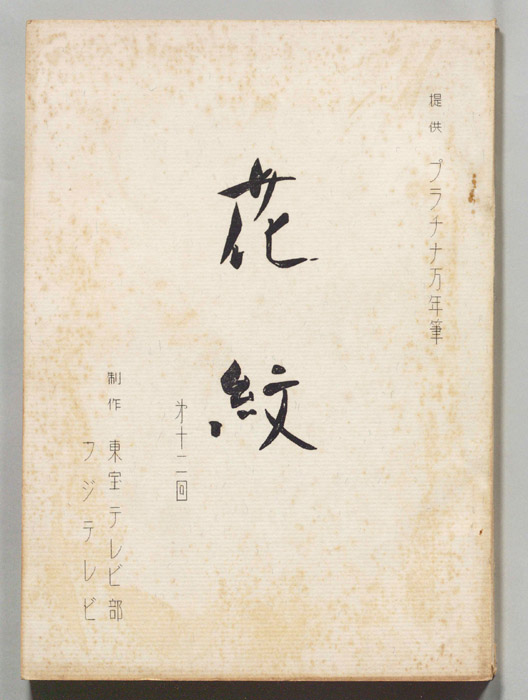 提供 プラチナ万年筆
花紋
㐧十二回
制作 東宝テレビ部
フジテレビ